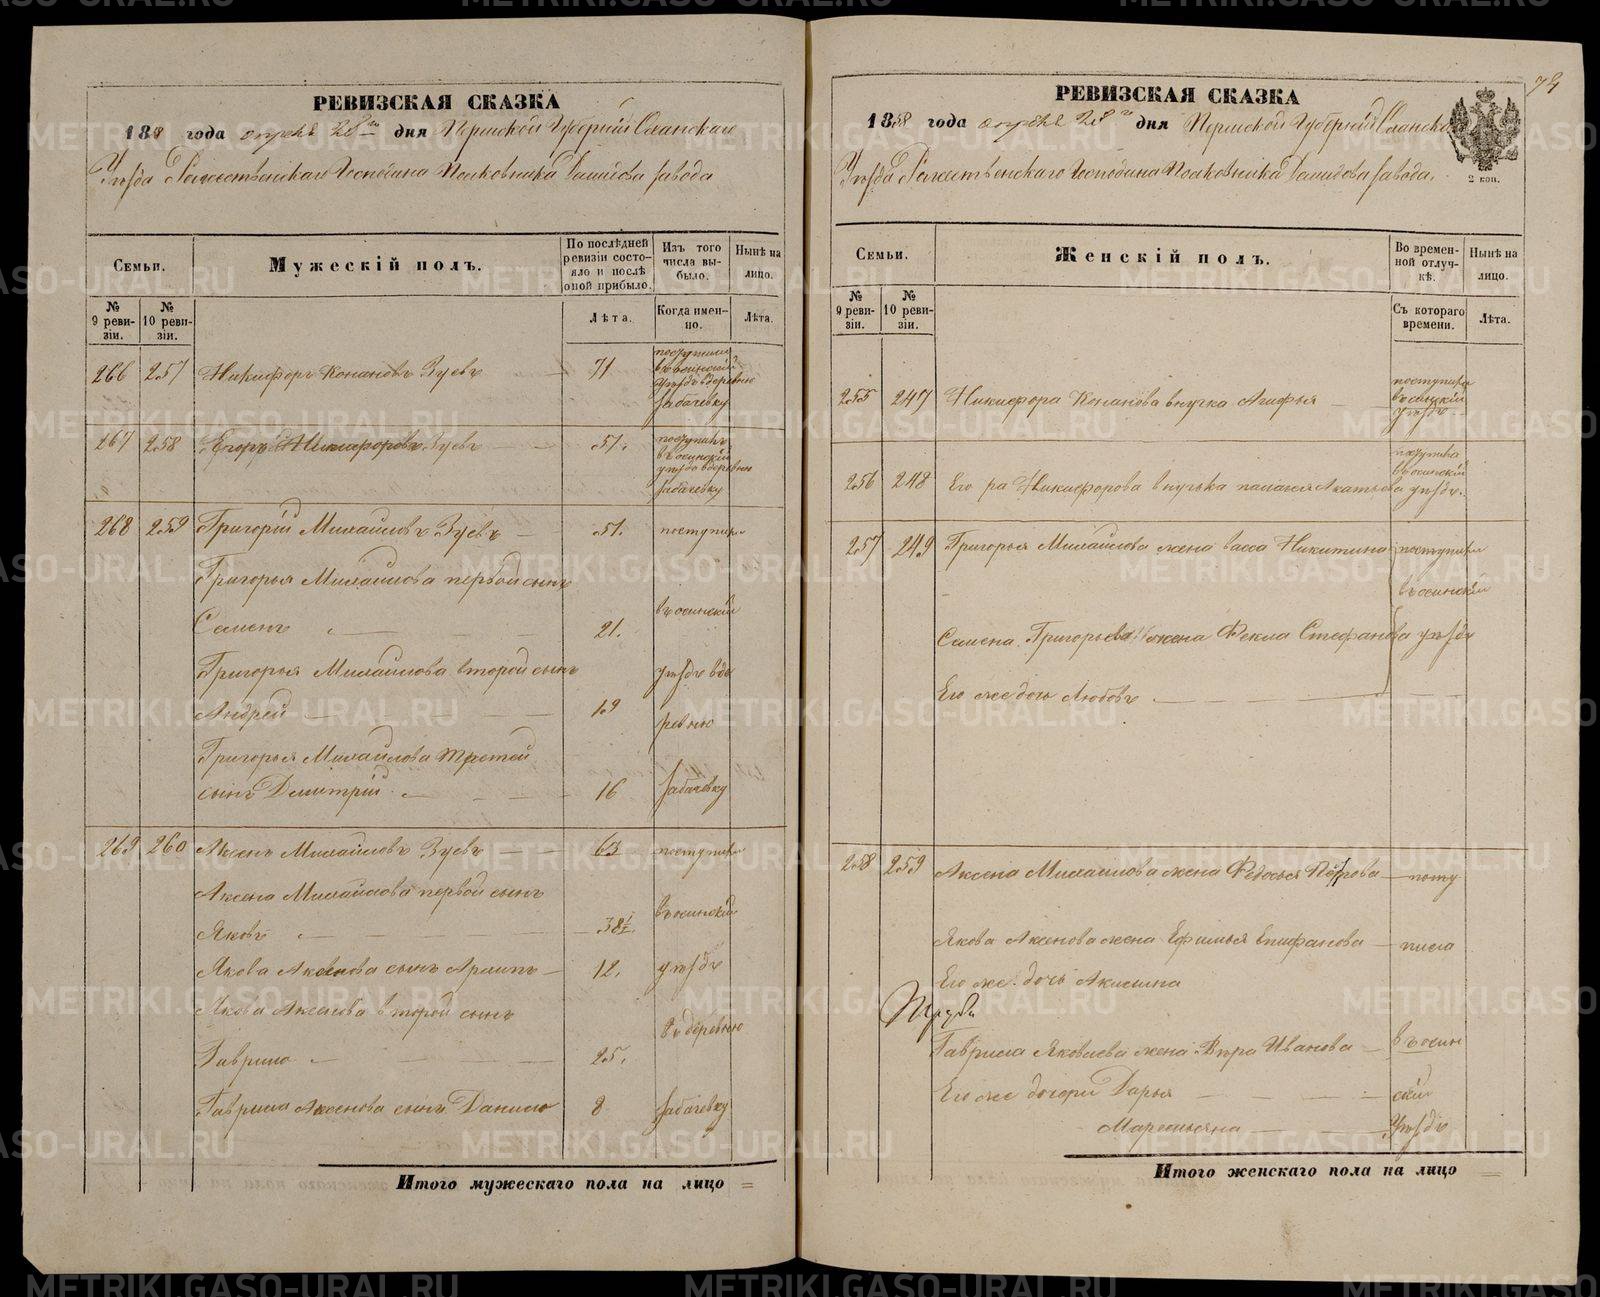 РЕВИЗСКАЯ СКАЗКА
1858 года апреля 28го дня Пермской Губернии Оханскаго
Уезда Рожественскаго Господина Полковника Демидова завода
Семьи.
Мужескій полъ.
По послѣдней ревизіи состояло и послѣ оной прибыло.
Изъ того числа выбыло.
Нынѣ на лицо.
№ 9 ревизіи.
№ 10 ревизіи.
Лѣта.
Когда именно.
Лѣта.
266 257 Никифоръ Конановъ Зуевъ 71 поступили въ осинскій уѣздъ в деревню
267 258 Егоръ Никифоровъ Зуевъ 51. поступилъ въ осинскій уѣздъ в деревню
268 259 Григорій Михайловъ Зуевъ 51. поступили
Григорья Михайлова первой сынъ
Семенъ 21. въ осинскій
Григорья Михайлова второй сынъ уѣздъ в де
Андрей 19 ревню
Григорья Михайлова третей
сынъ Дмитрій 16
269 260 Аксенъ Михайловъ Зуевъ 63 поступили
Аксена Михайлова первой сынъ въ осинскій
Яковъ 38½.
Якова Аксенова сынъ Архипъ 12. уѣздъ
Якова Аксенова второй сынъ въ деревню
Гаврило 25.
Гаврила Аксенова сынъ Данило 8
Итого мужескаго пола на лицо =
74
РЕВИЗСКАЯ СКАЗКА
1858 года апреля 28го дня Пермской Губерніи Оханскаго
Уѣзда Рожественскаго Господина Полковника Демидова завода.
2 коп.
Семьи.
Женскій полъ.
Во временной отлучкѣ.
Нынѣ на лицо.
№ 9 ревизіи.
№ 10 ревизіи.
Съ котораго времени.
Лѣта.
255 247 Никифора Конанова внучка Агафья поступила въ осинскій уѣздъ
256 248 Никифорова внучька поступила въ осинскій уѣздъ.
257 249 Григорья Михайлова жена Васса Никитина поступили
въ осинскій
Семена Григорьева жена Фекла Стефанова уѣздъ
Его же дочь Любовь
258 259 Аксена Михайлова жена Федосья Петрова
Якова Аксенова жена Ефимья Епифанова
Его же дочь Акилина
Гаврила Яковлева жена Вѣра Иванова въ осин
Его же дочери Дарья скій
Маремьяна уѣздъ
Итого женскаго пола на лицо =
METRIKI.GASO-URAL.RU